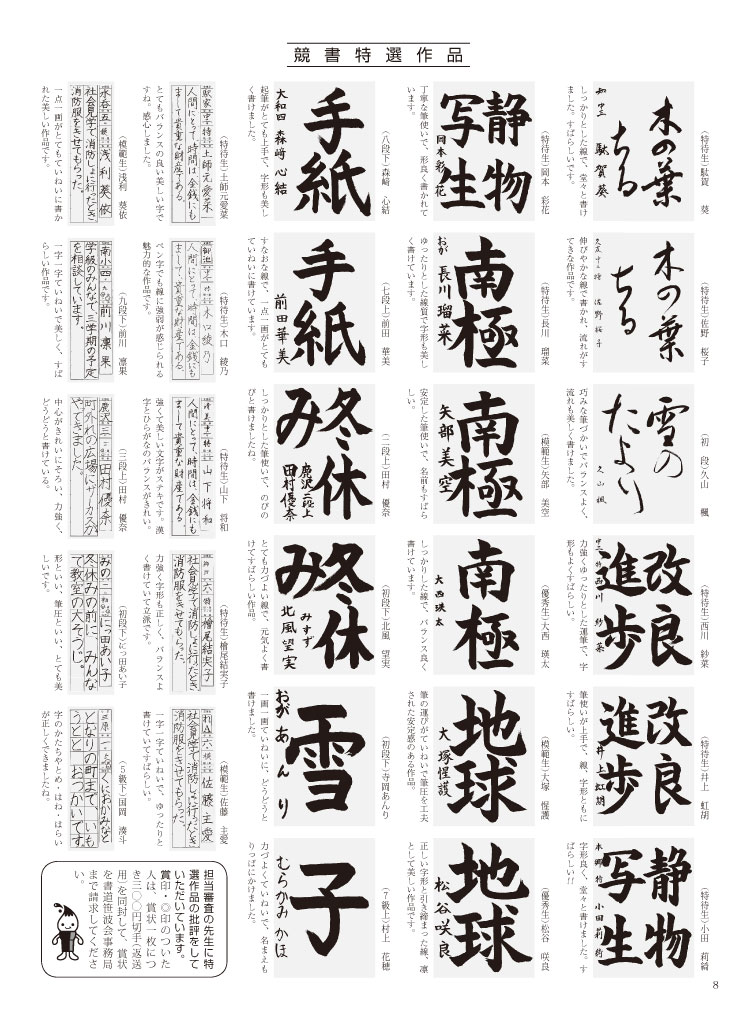 競書特選作品
(特待生)駄賀 葵
木の葉
ちる
駄賀葵
しっかりとした線で、堂々と書け
ました。すばらしいです。
(特待生)岡本 彩花
静物
写生
岡本彩花
丁寧な筆使いで、形良く書かれて
います。
(八段下)森﨑 心結
手紙
大和四 森﨑心結
起筆がとても上手で、字形も美し
く書けました。
(特待生)土師元愛菜
人間にとって、時間は金銭にも
まして貴重な財産である。
土師元愛菜
とてもバランスの良い美しい字で
すね。感心しました。
(模範生)浅利 葵依
永春五
浅利葵依
社会見学で消防しょに行ったとき
消防服をきせてもらった。
一点一画がとてもていねいに書か
れた美しい作品です。
(特待生)佐野 桜子
木の葉
ちる
佐野桜子
伸びやかな線で書かれ、流れがす
てきな作品です。
(特待生)長川 瑠菜
南極
おが 長川瑠菜
ゆったりとした線質で字形も美し
く書けています。
(七段上)前田 華美
手紙
前田華美
すなおな線で、一点一画がとても
ていねいに書けています。
(特待生)木口 綾乃
木口綾乃
人間にとって、時間は金銭にも
まして、貴重な財産である。
ペン字でも線に強弱が感じられる
魅力的な作品です。
(九段下)前川 凛果
南小四
前川凛果
学級のみんなで、三学期の予定
を相談しています。
一字一字ていねいで美しく、すば
らしい作品です。
(初 段)久山 楓
雪の
たより
久山楓
巧みな筆づかいでバランスよく、
流れも美しく書けました。
(模範生)矢部 美空
南極
矢部美空
安定した筆使いで、名前もすばら
しい。
(二段上)田村 優奈
冬休
み
鹿沢二段上
田村優奈
しっかりとした筆使いで、のびの
びと書けましたね。
(特待生)山下 将和
山下将和
人間にとって、時間は金銭にも
まして貴重な財産である。
強くて美しい文字がステキです。漢
字とひらがなのバランスがきれい。
(二段上)田村 優奈
鹿沢三
田村優奈
町外れの広場にサーカスが
やってきました。
中心がきれいにそろい、力強く、
どうどうと書けている。
(特待生)西川 紗菜
改良
進歩
西川紗菜
力強くゆったりとした運筆で、字
形もよくすばらしい。
(優秀生)大西 瑛太
南極
大西瑛太
しっかりした線で、バランス良く
書けています。
(初段下)北風 望実
冬休
み
みすず
北風望実
とても力づよい線で、元気よく書
けてすばらしい作品。
(特待生)檜尾結実子
檜尾結実子
社会見学で消防しょに行ったとき
消防服をきせてもらった。
力強く字形も正しく、バランスよ
く書けていて立派です。
(初段下)にった田あい子
みの
にった田あい子
冬休みの前に、みんな
で教室の大そうじ。
形といい、筆圧といい、とても美
しいです。
(特待生)井上 虹胡
改良
進歩
井上虹胡
筆使いが上手で、線、字形ともに
すばらしい。
(模範生)大塚 惺護
地球
大塚惺護
筆の運びがていねいで筆圧を工夫
された安定感のある作品。
(初段下)寺岡あんり
雪
おが あんり
一画一画ていねいに、どうどうと
書けました。
(模範生)佐藤 主愛
佐藤主愛
社会見学で消防しょに行ったとき
消防服をきせてもらった。
一字一字ていねいで、ゆったりと
書けていてすばらしい。
(5級下)国岡 湊斗
三原
となりの町まで、いも
うとと おつかいです
字のかたちやとめ・はね・はらい
が正しくできましたね。
(特待生)小田 莉綺
静物
写生
小田莉綺
字形良く、堂々と書けました。す
ばらしい!!
(優秀生)松谷 咲良
地球
松谷咲良
正しい字形と引き締まった線、凛
として美しい作品です。
(7級上)村上 花穂
子
むらかみ かほ
力づよくていねいで、名まえも
りっぱにかけました。
担当審査の先生に特
選作品の批評をして
いただいています。
賞印・◎印のついた
人は、賞状一枚につ
き三〇〇円切手(返送
用)を同封して、賞状
を書道笹波会事務局
まで請求してくださ
い。
8